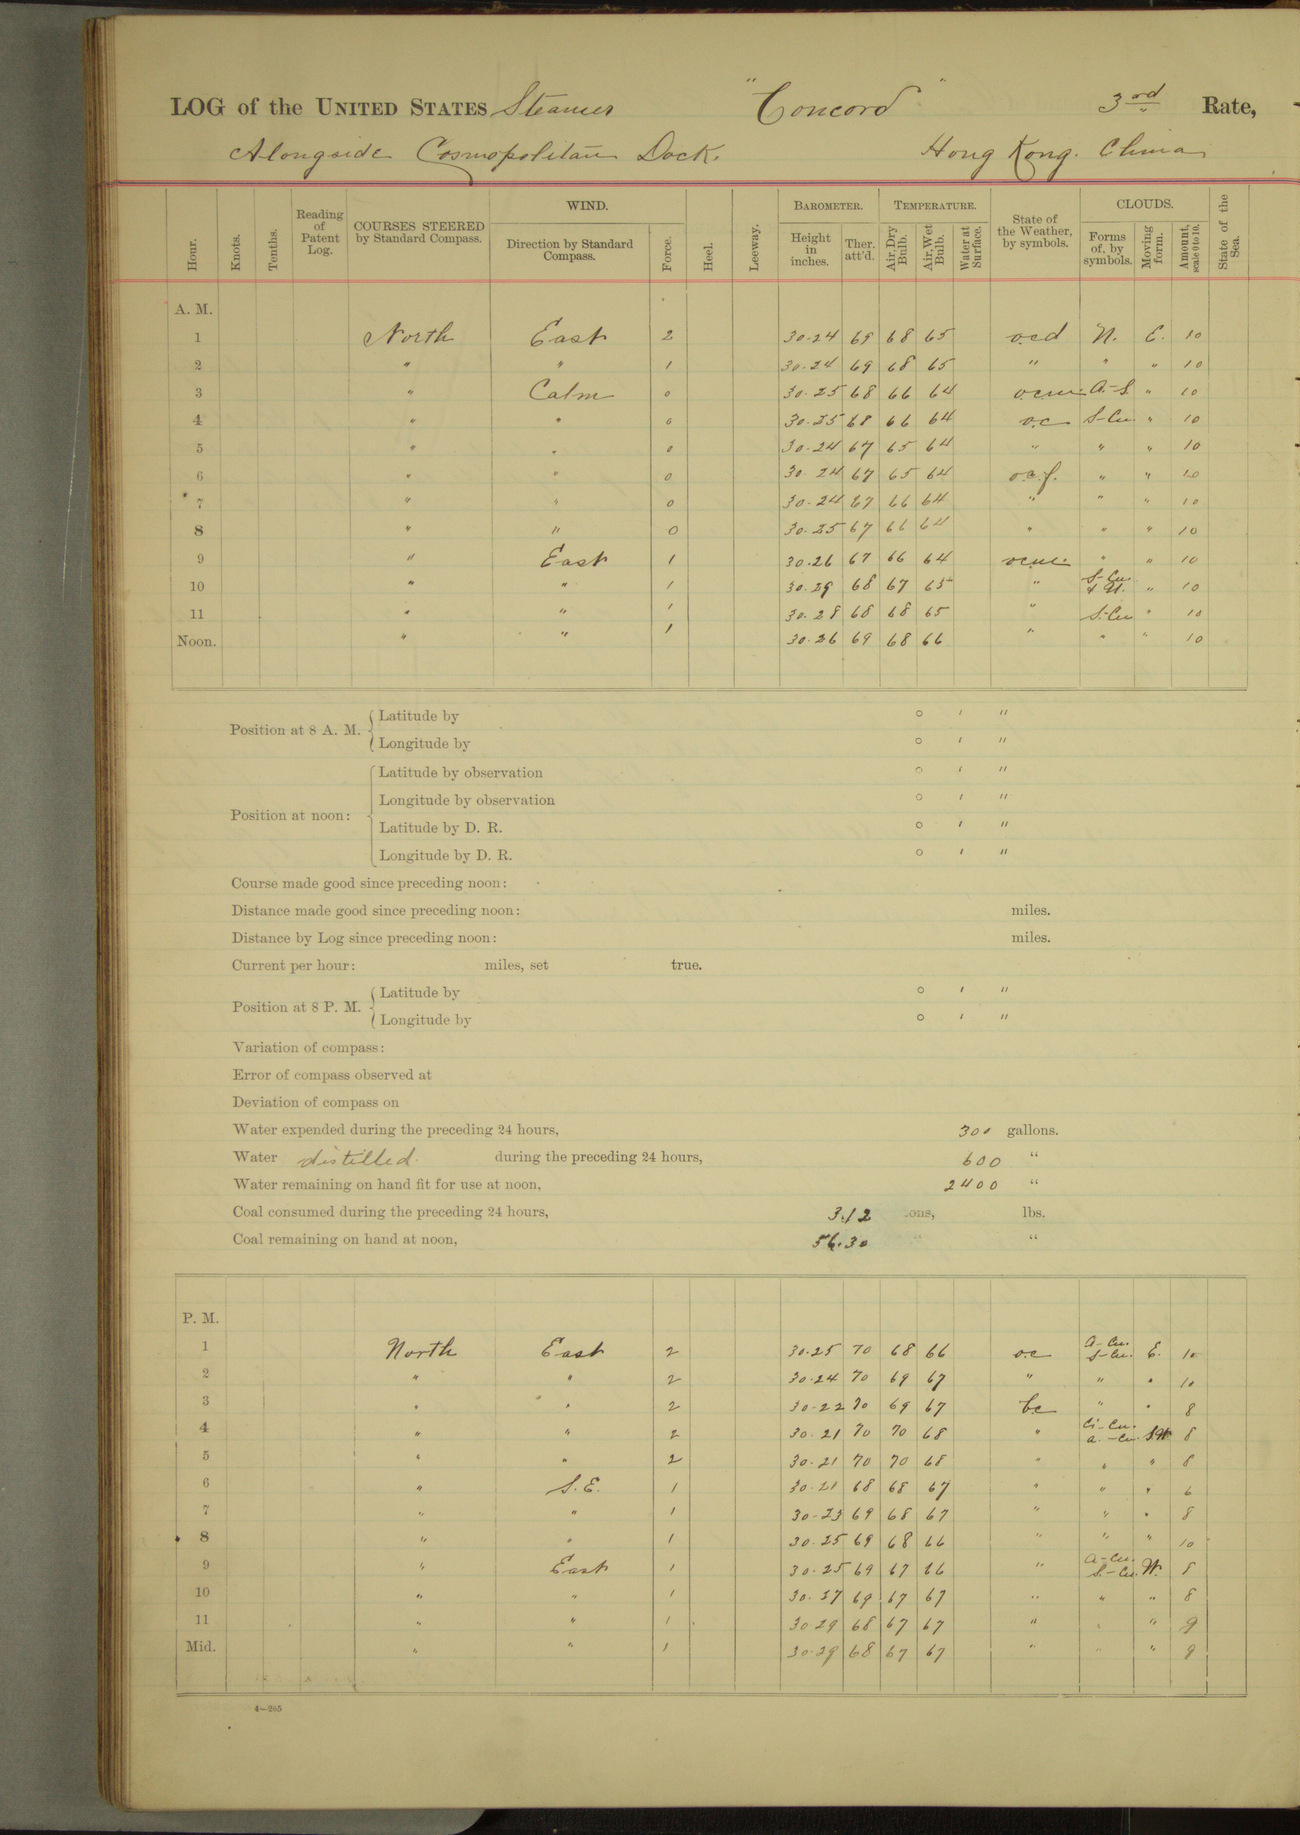 LOG of the UNITED STATES Steamer "Concord" 3rd Rate,
Alongside Cosmopolitan Dock. Hong Kong. China
Hour. Knots. Tenths. Reading of Patent Log. COURSES STEERED by Standard Compass. WIND. Direction by Standard Compass. Force. Heel. Leeway. BAROMETER. Height in inches. Ther. att'd. TEMPERATURE. Air, Dry Bulb. Air, Wet Bulb. Water at Surface. State of the Weather, by symbols. CLOUDS. Forms of, by symbols. Moving form. Amount, scale 0 to 10. State of the Sea.
A. M.
1 North East 2 30.24 69 68 65 ocd N. E. 10
2 " " 1 30.24 69 68 65 " " " 10
3 " Calm 0 30.25 68 66 64 ocm A-S. " 10
4 " " 0 30.25 68 66 64 oc S-Cu. " 10
5 " " 0 30.24 67 65 64 " " " 10
6 " " 0 30.24 67 65 64 o.c.f. " " 10
7 " " 0 30.24 67 66 64 " " " 10
8 " " 0 30.25 67 66 64 " " " 10
9 " East 1 30.26 67 66 64 ocm. " " 10
10 " " 1 30.29 68 67 65 " S-Cu. & N. " 10
11 " " 1 30.28 68 68 65 " S-Cu " 10
Noon. " " 1 30.26 69 68 66 " " " 10
Position at 8 A. M. Latitude by ° ' "
Longitude by ° ' "
Position at noon: Latitude by observation ° ' "
Longitude by observation ° ' "
Latitude by D. R. ° ' "
Longitude by D. R. ° ' "
Course made good since preceding noon:
Distance made good since preceding noon: miles.
Distance by Log since preceding noon: miles.
Current per hour: miles, set true.
Position at 8 P. M. Latitude by ° ' "
Longitude by ° ' "
Variation of compass:
Error of compass observed at
Deviation of compass on
Water expended during the preceding 24 hours, 300 gallons.
Water distilled. during the preceding 24 hours, 600 "
Water remaining on hand fit for use at noon, 2400 "
Coal consumed during the preceding 24 hours, 3.12 ons, lbs.
Coal remaining on hand at noon, 56.30 " "
P. M.
1 North East 2 30.25 70 68 66 oc A-Cu. S-Cu. E. 10
2 " " 2 30.24 70 69 67 " " " 10
3 " " 2 30.22 70 69 67 bc " " 8
4 " " 2 30.21 70 70 68 " Ci-Cu. a.-Cu. SW 8
5 " " 2 30.21 70 70 68 " " " 8
6 " S.E. 1 30.21 68 68 67 " " " 6
7 " " 1 30.23 69 68 67 " " " 8
8 " " 1 30.25 69 68 66 " " " 10
9 " East 1 30.25 69 67 66 " A-Cu. S-Cu. W. 8
10 " " 1 69 67 67 " " " 8
11 " " 1 30 29 68 67 67 " " " 9
Mid. " " 1 30.29 68 67 67 " " " 9
4—265